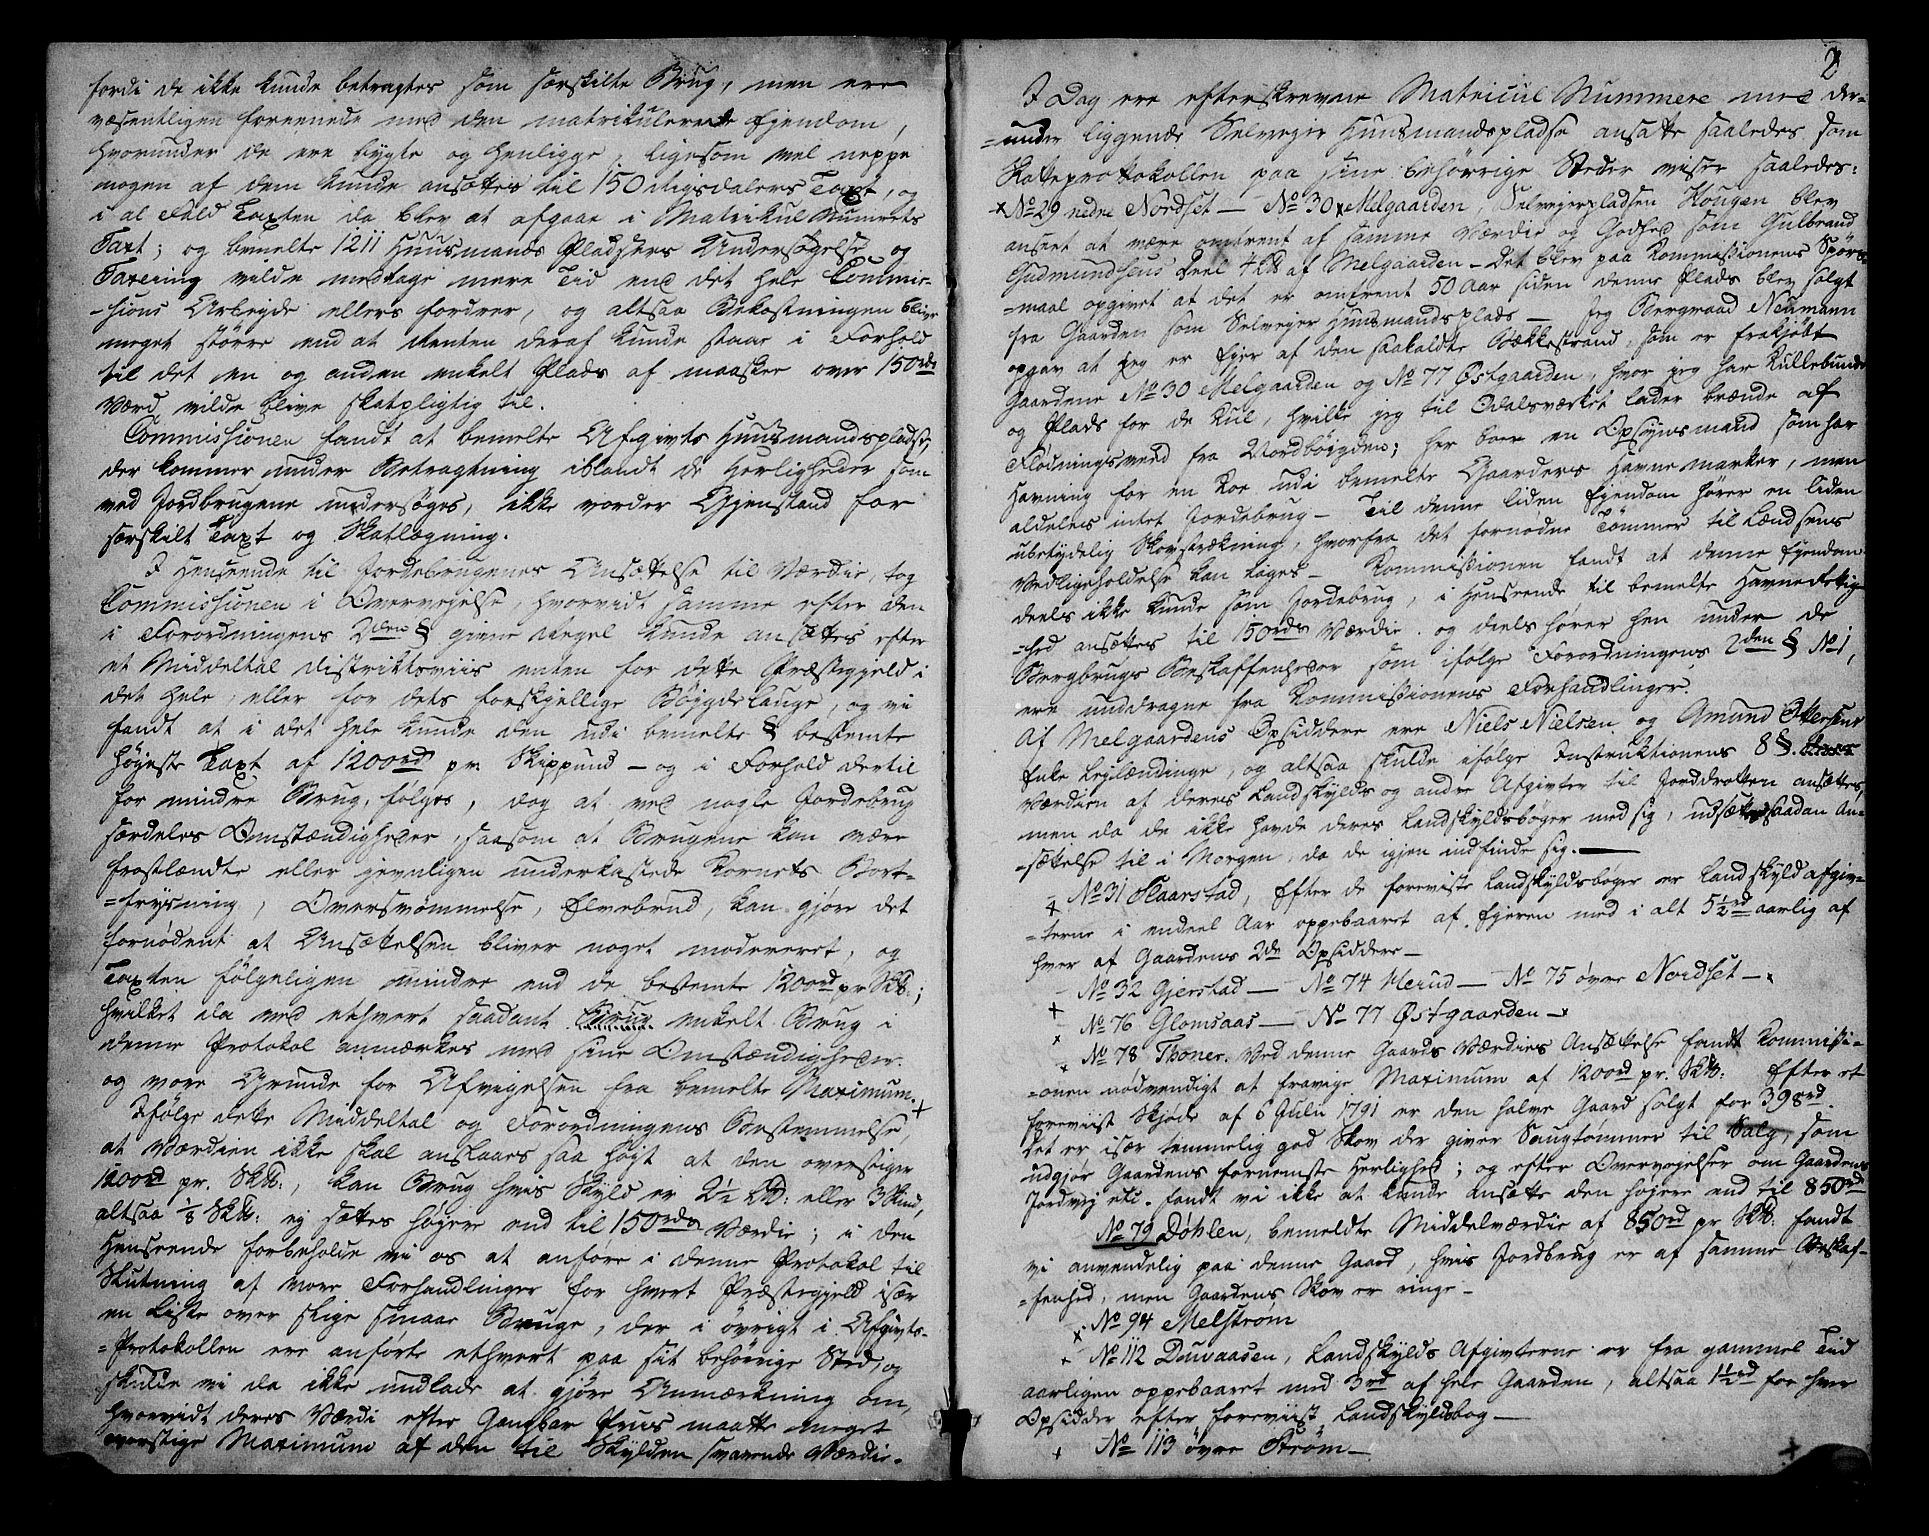 fordi de ikke kunde betragtes som særskilte Brug, men ere
væsentligen foreenede med den matrikulerede Ejendom,
hvorunder de ere bygte og henligge, ligesom vel neppe
nogen af dem kunde ansættes til 150 Rigsdalers Taxt, og
i al Fald Taxten da blev at afgaae i Matrikul Numrets
Taxt; og bemelte 1211 Huusmands Pladsers Undersögelse og
Taxering vilde medtage mere Tid end det hele Commis-
-sions Arbeyde ellers fordrer, og altsaa Bekostningen blive
meget större end at Renten deraf kunde staae i Forhold
til det en og anden enkelt Plads af maaskee over 150rdr
Værd, vilde blive skatpligtig til.
Commissionen fandt at bemelte Afgivts Huusmandspladse,
der kommer under Betragtning iblandt de Herligheder som
ved Jordbrugene undersöges, ikke vorder Gjenstand for
særskilt Taxt og Skatlægning.
I Henseende til Jordebrugenes Ansættelse til Værdie, tog
Commissionen i Overvejelse, hvorvidt samme efter den
i Forordningens 2den § givne Regel kunde ansættes efter
et Middeltal distriktsviis enten for dette Præstegjeld i
det hele, eller for dets forskjellige Böjgdelauge, og vi
fandt at i det hele kunde den udi bemelte § bestemte
höjeste Taxt af 1200rd pr. Skippund — og i Forhold dertil
for mindre Brug, fölges, dog at ved nogle Jordebrug
særdeles Omstændigheder, saasom at Brugene kan være
frostlændte eller jevnligen underkastede Kornets Bort-
=frysning, Oversvömmelse, Elvebrud, kan gjöre det
fornödent at Ansættelsen bliver noget modereret, og
Taxten fölgeligen mindre end de bestemte 1200rd pr Sk℔:;
hvilket da ved ethvert saadant Brug enkelt Brug i
denne Protokol anmærkes med sine Omstændigheder
og vore Grunde for Afvigelsen fra bemelte Maximum.+
Ifölge dette Middeltal og Forordningens Bestemmelse,
at Værdien ikke skal anslaaes saa höjt at den overstiger
1200rd pr. Sk℔:, kan Brug hvis Skyld er 2½ L℔: eller 3 Skind,
altsaa ⅛ Sk℔: ej sættes höjere end til 150rdr Værdie; i den
Henseende forbeholde vi os at anföre i denne Protokol til
Slutning af vore Forhandlinger for hvert Præstegjeld især
en Liste over slige smaae Bruge, der i övrigt i Afgivts-
=Protokollen ere anförte ethvert paa sit behörige Sted, og
skulde vi da ikke undlade at gjöre Anmærkning om,
hvorvidt deres Værdi efter Gangbar Priis maatte meget
overstige Maximum af den til Skylden svarende Værdie.
2
I Dag ere efterskrevne Matricül Nummere med der-
=under liggende Selvejer Huusmandspladse ansatte saaledes som
Skatteprotokollen paa sine behörrige Steder viser saaledes:
× No 29 nedre Nordset — No 30 × Melgaarden, Selvejerpladsen Haugen blev
anseet at være omtrent af samme Værdie og Godhed som Gulbrand
Gudmundsens Deel 4 L℔ af Melgaarden — Det blev paa Kommissionens Spörs-
=maal opgivet at det er omtrent 50 Aar siden denne Plads blev solgt
fra Gaarden som Selvejer Huusmandsplads — Jeg Bergraad Neumann
opgav at jeg er Ejer af den saakaldte Bækkestrand, som er frakjöbt
Gaardene No 30 Melgaarden og No 77 Østgaarden, hvor jeg har Kullebunde
og Plads for de Kul, hvilke jeg til Odalsværket lader brænde af
Flödningsveed fra Nordböjgden; her boer en Opsynsmand som har
Havning for en Koe udi bemelte Gaarders Havnemarker, men
aldeles intet Jordebrug — Til denne liden Ejendom hörer en liden
ubetydelig Skovstrækning, hvorfra det fornödne Tömmer til Lændsens
Vedligeholdelse kan tages — Kommissionen fandt at denne Ejendom
deels ikke kunde som Jordebrug, i Henseende til bemelte Havnerettig-
=hed ansættes til 150rdr Værdie, og deels hörer hen under de
Bergbrugs Beskaffenheder som ifölge Forordningens 2den § No 1,
ere unddragne fra Kommissionens Forhandlinger.
Af Melgaardens Opsiddere ere Niels Nielsen og Amund Ottersens
Enke Leylændinge, og altsaa skulde ifölge Instruktionens 8 §.
Værdien af deres Landskylds og andre Afgivter til Jorddrotten ansættes,
men da de ikke havde deres Landskyldsböger med sig, udsættes saadan An-
=sættelse til i Morgen, da de igjen indfinde sig. —
+ No 31 Slaarstad, Efter de foreviste Landskyldsböger er Landskyldafgiv-
=terne i endeel Aar oppebaaret af Ejeren med i alt 5½rd aarlig af
hver af Gaardens 2de Opsiddere —
No 32 Gjerstad — No 74 Herud — No 75 övre Nordset — ×
+ No 76 Glomsaas — No 77 Østgaarden — ×
× No 78 Thoner. Ved denne Gaards Værdies Ansættelse fandt Kommissi-
=onen nödvendigt at fravige Maximum af 1200rd pr. Sk℔: Efter et
foreviist Skjöde af 6 Julii 1791 er den halve Gaard solgt for 398rd
Det er især temmelig god Skov der giver Saugtömmer til Salg, som
udgjör Gaardens fornemste Herlighed; og efter Overvejelser om Gaardens
Jordvej etc. fandt vi ikke at kunde ansætte den höjere end til 850rd
No 79 Døhlen, bemeldte Middelværdie af 850rd pr Sk℔: fandt
vi anvendelig paa denne Gaard, hvis Jordbrug er af samme Beskaf-
=fenhed, men Gaardens Skov er ringe —
× No 94 Melström
+ No 112 Duvaasen, Landskylds Afgivterne er fra gammel Tid
aarligen oppebaaret med 3rd af hele Gaarden, altsaa 1½rd for hver
Opsidder efter foreviist Landskyldsbog —
+ No 113 övre Ström —
+